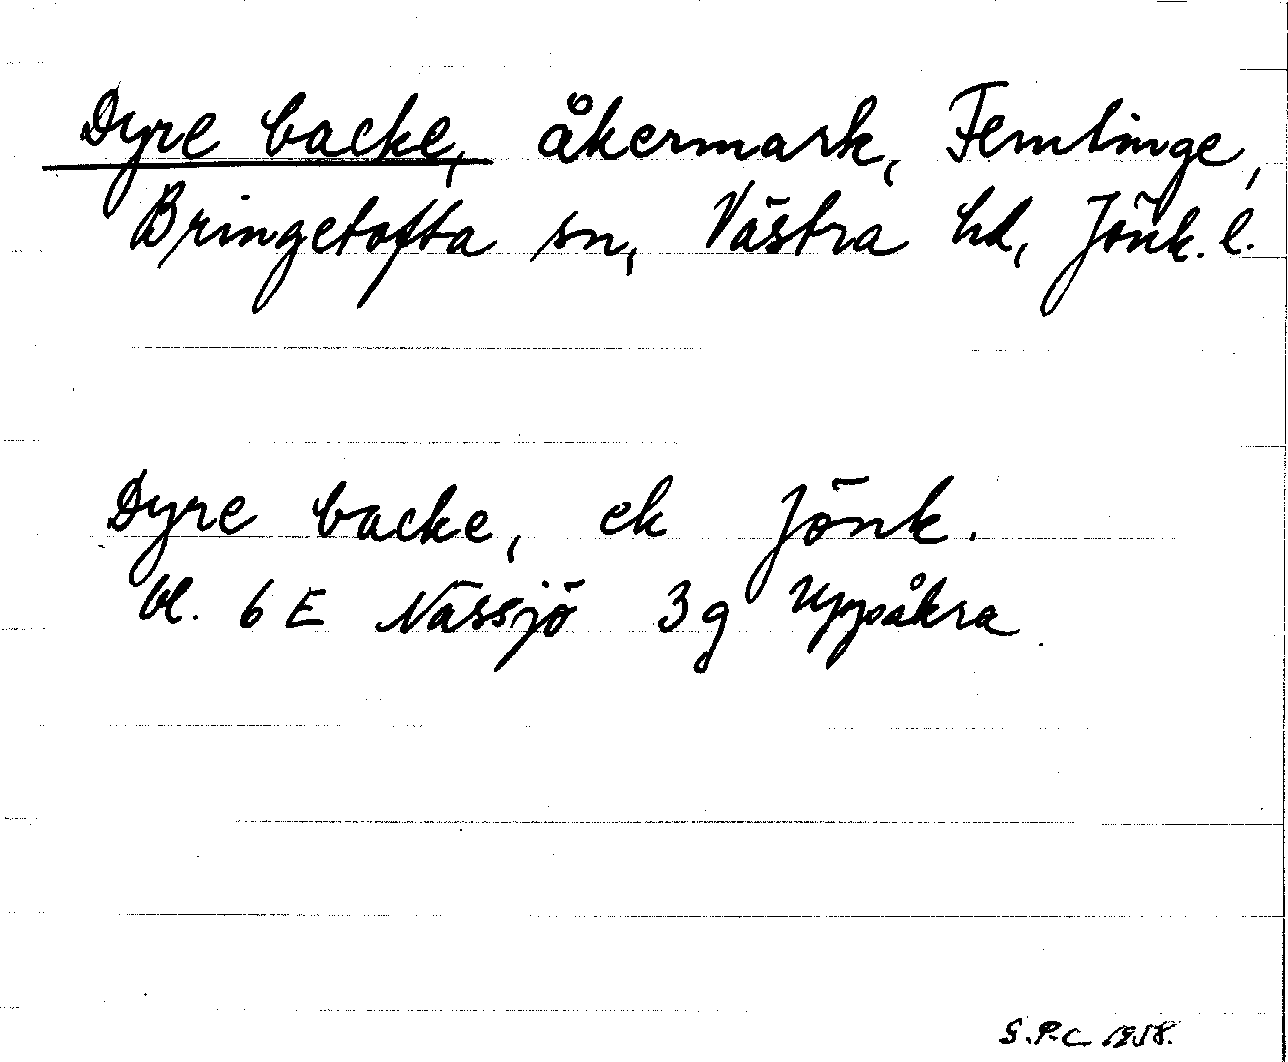 Dyre backe, åkermark, Femtinge,
Bringetofta sn, Västra hd, Jönk. l.
Dyre backe, ek Jönk.
bl. 6 E Nässjö 3g Uppåkra
S.P.C 1958.